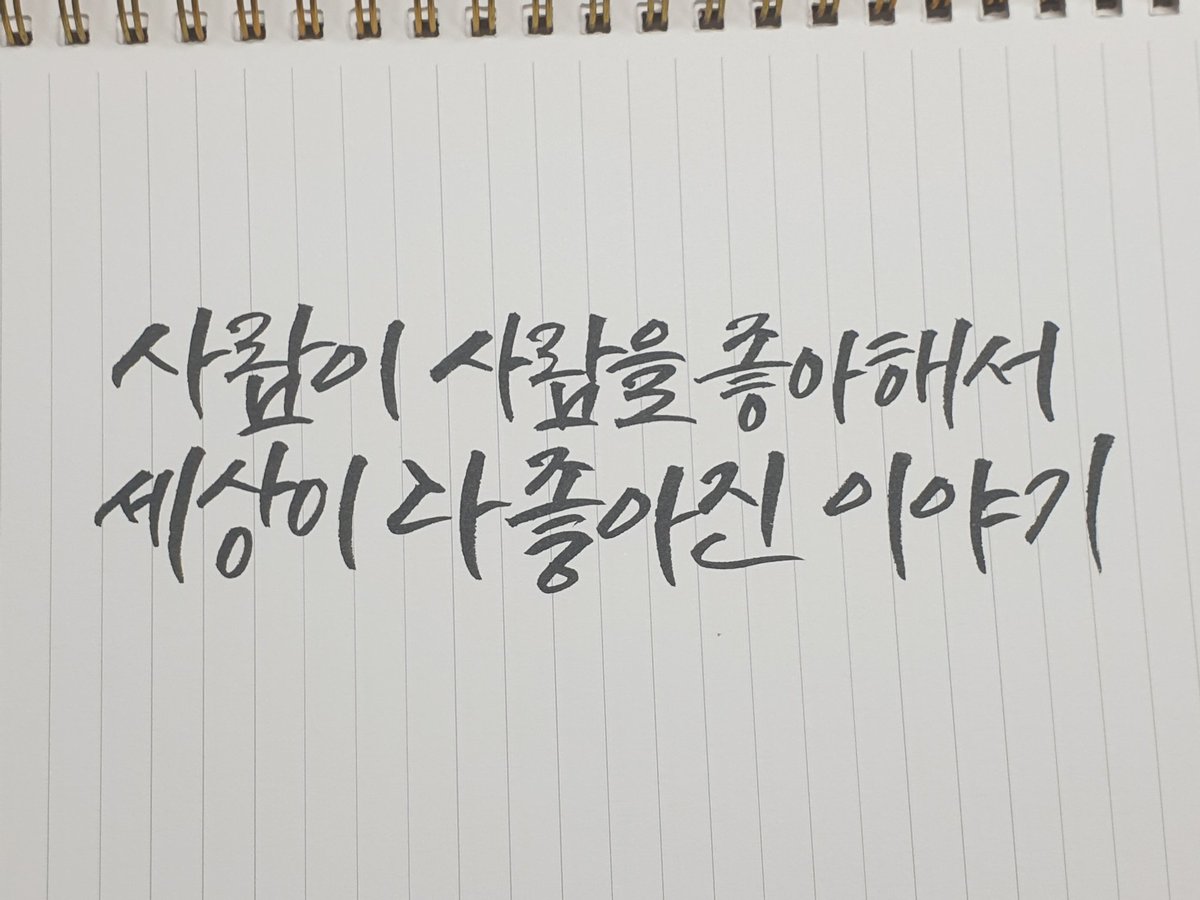 사람이 사람을 좋아해서
세상이 다 좋아진 이야기